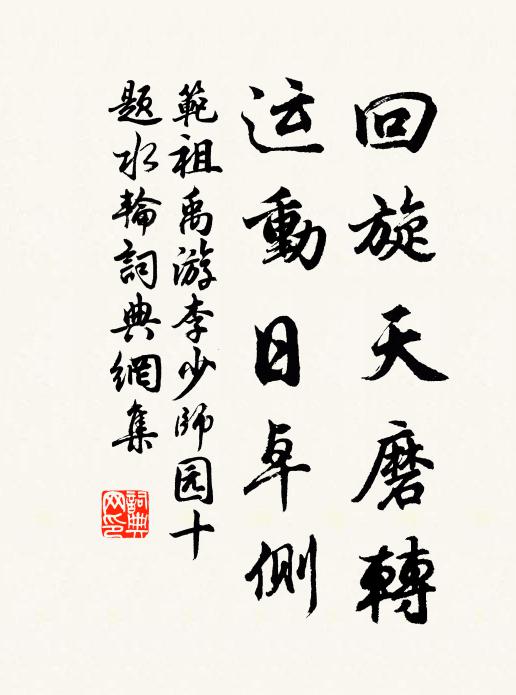 回旋天磨轉
运動日卓側
範祖禹游李少師园十
题水輪詞典網集
詞典
网印